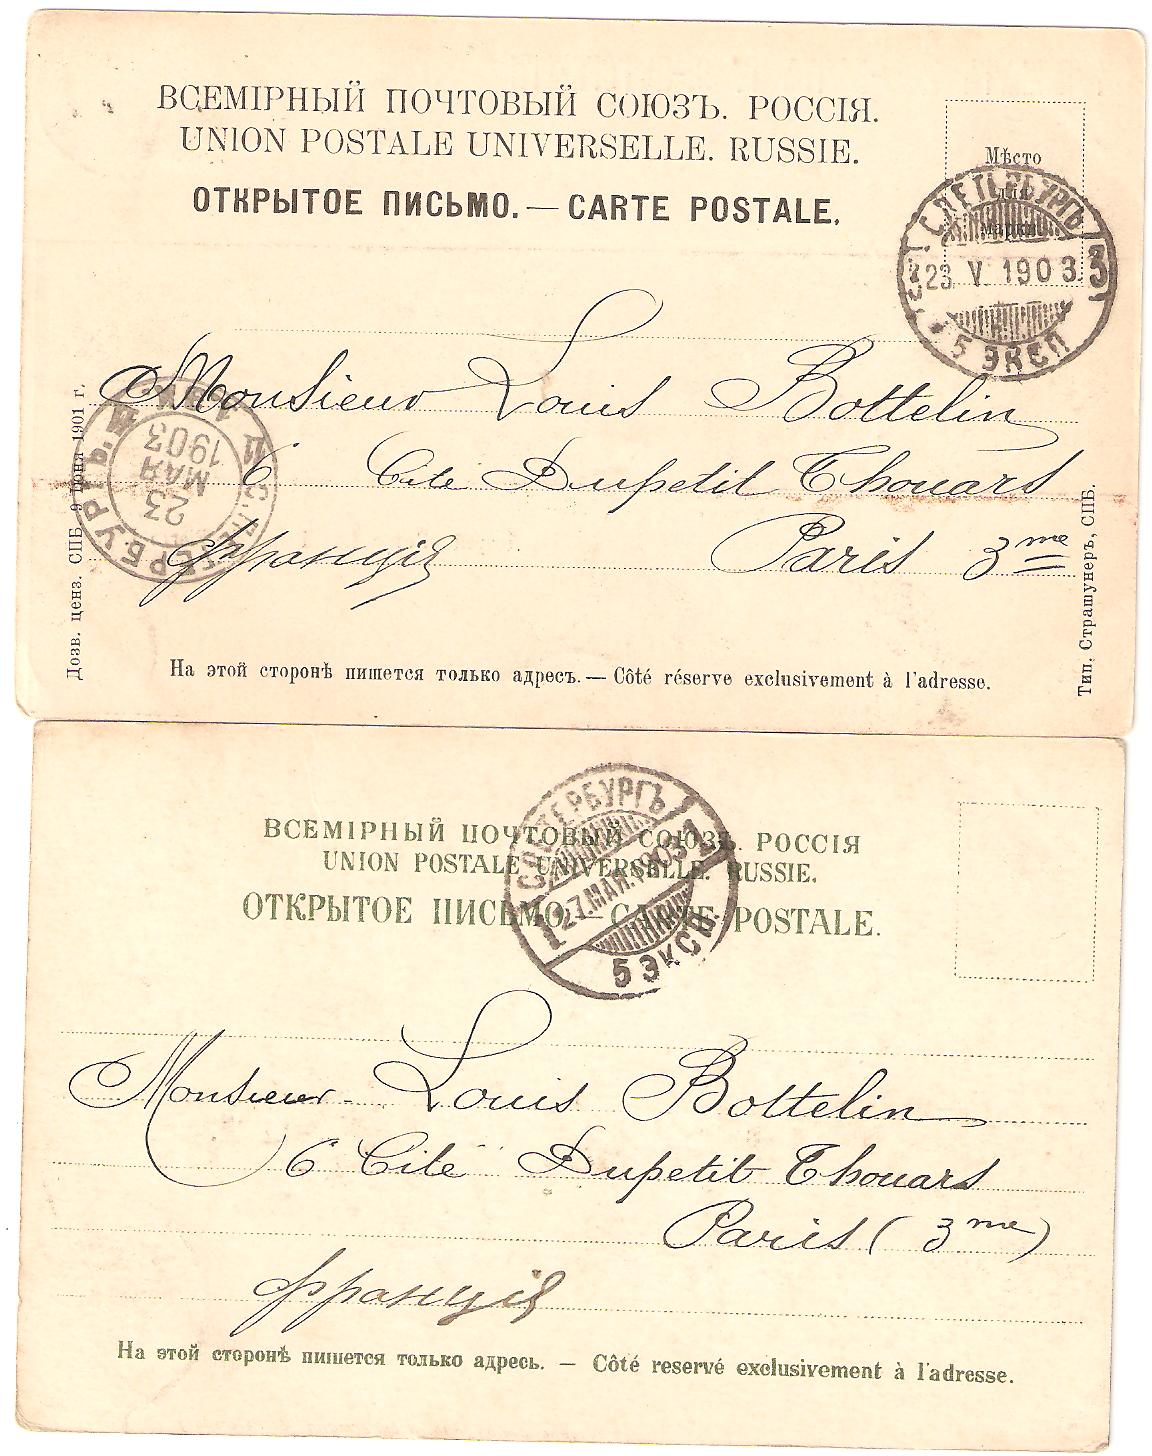 ВСЕМІРНЫЙ ПОЧТОВЫЙ СОЮЗЪ. РОССІЯ.
UNION POSTALE UNIVERSELLE. RUSSIE.
ОТКРЫТОЕ ПИСЬМО. — CARTE POSTALE.
Мѣсто
для
марки
С.ПЕТЕРБУРГЪ
23. V. 1903. 3
5 ЭКСП
Monsieur Louis Bottelin
6 Cité Dupetit Thouars
Франція Paris 3me
23
МАЯ
1903
Дозв. ценз. СПБ. 9 Іюня 1901 г.
Тип. Страшунеръ, СПБ.
На этой сторонѣ пишется только адресъ. — Côté réserve exclusivement à l'adresse.
ВСЕМІРНЫЙ ПОЧТОВЫЙ СОЮЗЪ. РОССІЯ
UNION POSTALE UNIVERSELLE. RUSSIE.
ОТКРЫТОЕ ПИСЬМО. — CARTE POSTALE.
С.ПЕТЕРБУРГЪ
1 27.МАЯ.1903 1
5 ЭКСП.
Monsieur Louis Bottelin
6 Cité Dupetit Thouars
Paris (3me)
Франція
На этой сторонѣ пишется только адресь. — Côté reservé exclusivement à l'adresse.